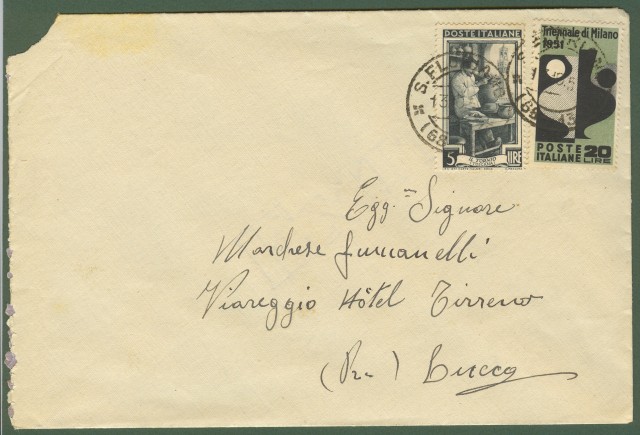 POSTE ITALIANE
5 LIRE
Triennale di Milano
1951
POSTE
ITALIANE
20
LIRE
Egg. Signore
Marchese Giumanelli
Viareggio Hôtel Tirreno
Lucca